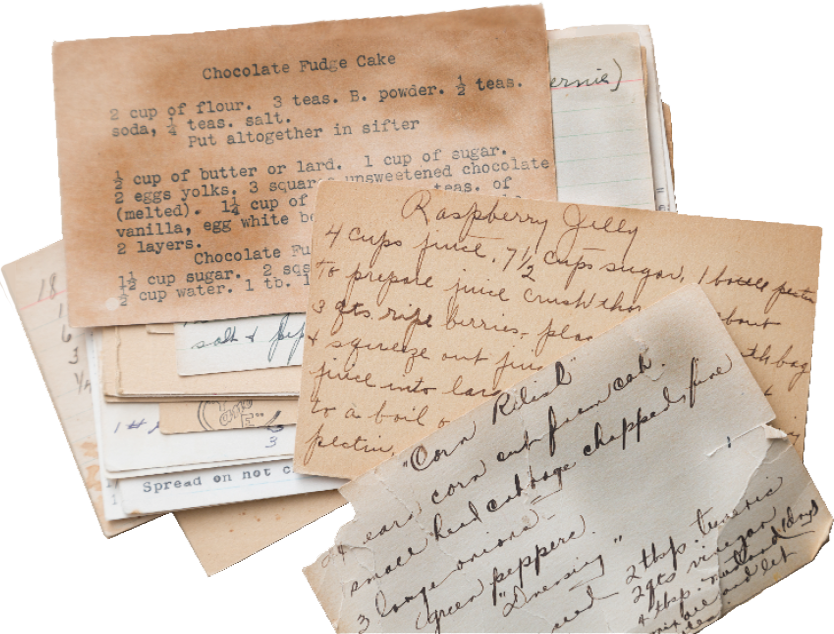 Chocolate Fudge Cake
2 cup of flour. 3 teas. B. powder. ½ teas.
soda, ¼ teas. salt.
Put altogether in sifter
½ cup of butter or lard. 1 cup of sugar.
2 eggs yolks. 3 squar unsweetened chocolate
(melted). 1¼ cup of teas. of
vanilla, egg white be
2 layers.
Chocolate Fu
1½ cup sugar. 2 sqs
½ cup water. 1 tb. 1
ernie)
Raspberry Jelly
4 cups juice, 7½ cups sugar, 1 bottle pectin
To prepare juice crush thor about
3 qts ripe berries, plac
+ squeeze out juic th bag
juice into lar
to a boil
pectin,
18
1
6
3
salt + pep
1#
3
Spread on not c
"Corn Relish"
ears corn cut from cob.
small head cabbage chopped fine
3 large onions
green peppers.
"Dressing"
2 tbsp. tumeric
2 qts vinegar
4 tbsp. mustard (dry)
mix all and let